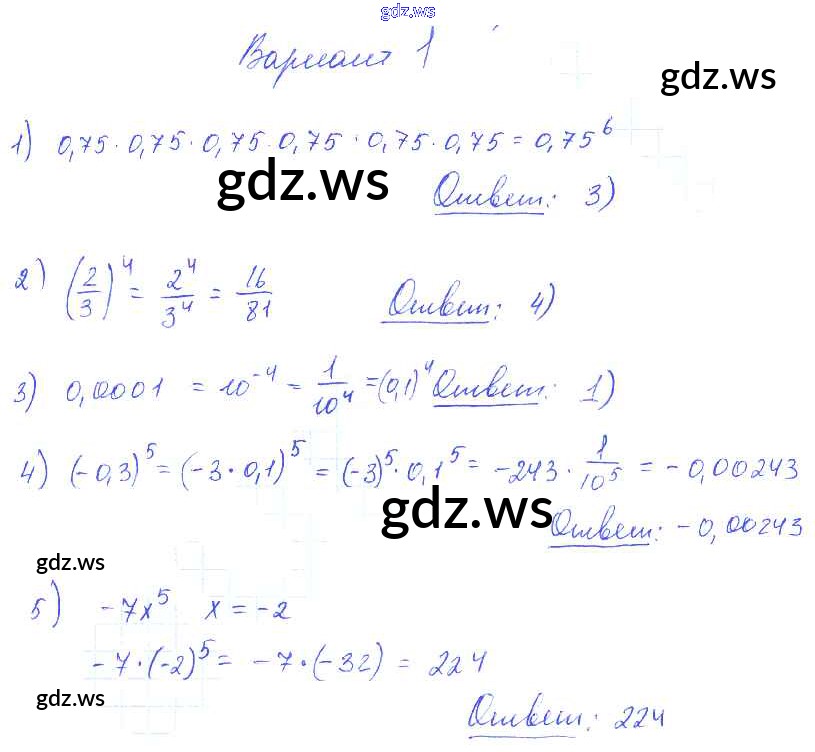 gdz.ws
Вариант 1
gdz.ws
1) 0,75 · 0,75 · 0,75 · 0,75 · 0,75 · 0,75 = 0,75⁶
gdz.ws
Ответ: 3)
2) (2/3)⁴ = 2⁴/3⁴ = 16/81 Ответ: 4)
3) 0,0001 = 10⁻⁴ = 1/10⁴ = (0,1)⁴ Ответ: 1)
4) (-0,3)⁵ = (-3 · 0,1)⁵ = (-3)⁵ · 0,1⁵ = -243 · 1/10⁵ = -0,00243
gdz.ws
Ответ: -0,00243
gdz.ws
5) -7x⁵ x = -2
-7 · (-2)⁵ = -7 · (-32) = 224
gdz.ws
Ответ: 224